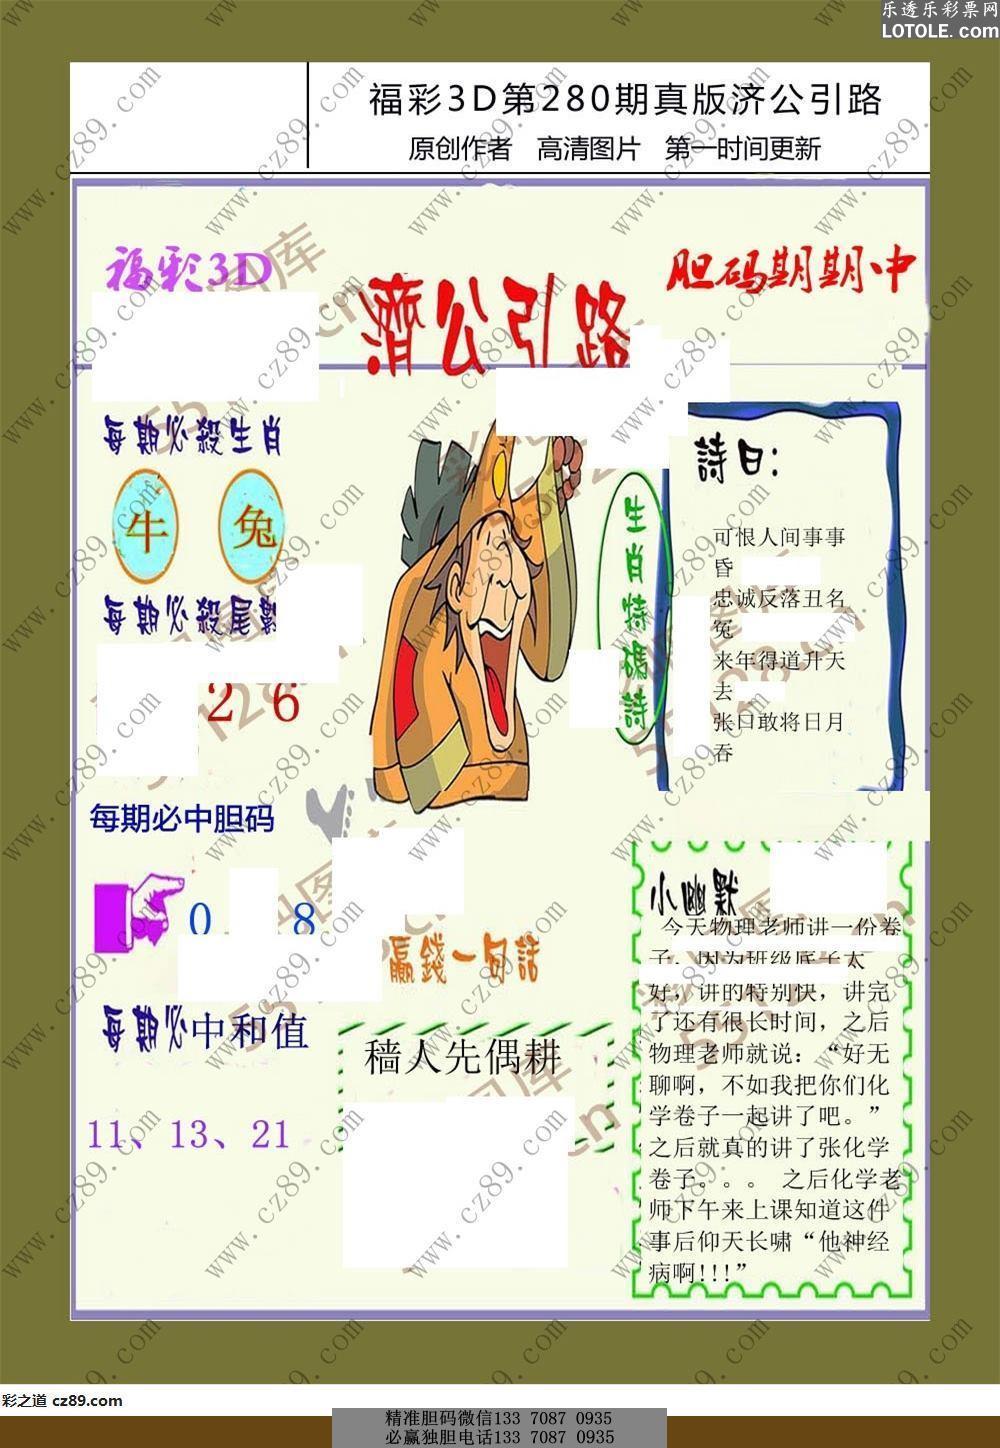 乐透乐彩票网
LOTOLE.com
福彩3D第280期真版济公引路
原创作者 高清图片 第一时间更新
福彩3D
濟公引路
胆码期期中
每期必殺生肖
牛 兔
每期必殺尾數
2 6
每期必中胆码
0 8
每期必中和值
11、13、21
生肖特碼詩
詩曰:
可恨人间事事
昏
忠诚反落丑名
冤
来年得道升天
去
张口敢将日月
吞
贏錢一句話
穑人先偶耕
小幽默
今天物理老师讲一份卷
子，因为班级底子太
好，讲的特别快，讲完
了还有很长时间，之后
物理老师就说：“好无
聊啊，不如我把你们化
学卷子一起讲了吧。”
之后就真的讲了张化学
卷子。。。 之后化学老
师下午来上课知道这件
事后仰天长啸“他神经
病啊!!!”
www.cz89.com
彩之道 cz89.com
精准胆码微信133 7087 0935
必赢独胆电话133 7087 0935